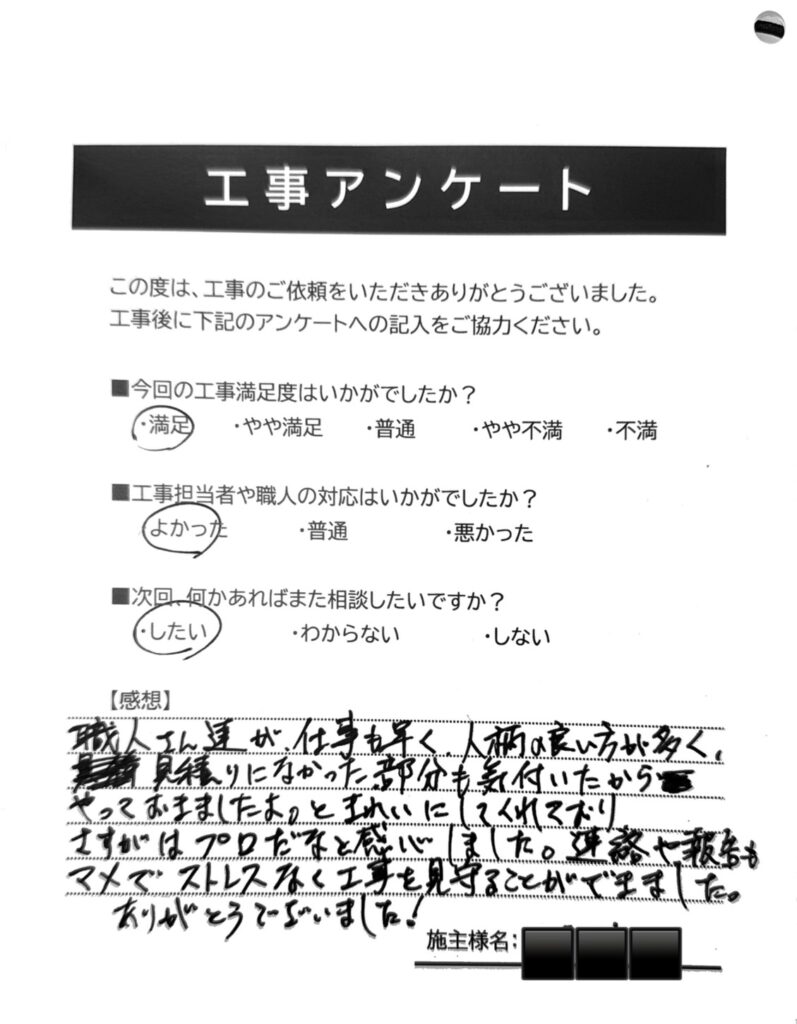 工事アンケート
この度は、工事のご依頼をいただきありがとうございました。
工事後に下記のアンケートへの記入をご協力ください。
■今回の工事満足度はいかがでしたか？
・満足 ・やや満足 ・普通 ・やや不満 ・不満
■工事担当者や職人の対応はいかがでしたか？
・よかった ・普通 ・悪かった
■次回、何かあればまた相談したいですか？
・したい ・わからない ・しない
【感想】
職人さん達が、仕事も早く、人柄の良い方が多く、
見積りになかった部分も気付いたから
やっておきましたよ。ときれいにしてくれており
さすがはプロだなと感心しました。連絡や報告も
マメでストレスなく工事を見守ることができました。
ありがとうございました！
施主様名：